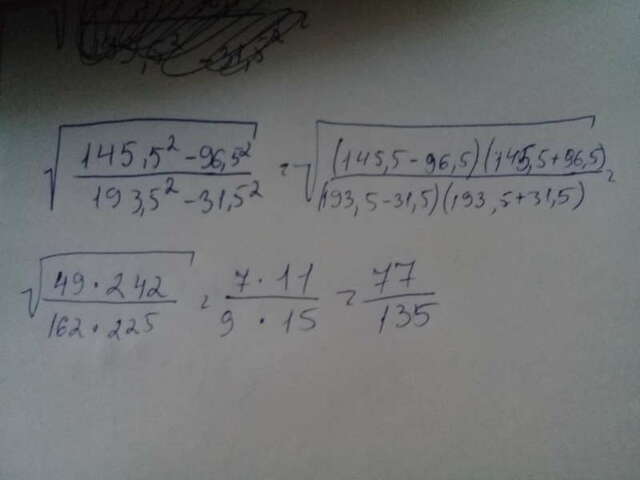 √((145,5² - 96,5²)/(193,5² - 31,5²)) = √(((145,5 - 96,5)(145,5 + 96,5))/((193,5 - 31,5)(193,5 + 31,5))) =
√((49 · 242)/(162 · 225)) = (7 · 11)/(9 · 15) = 77/135